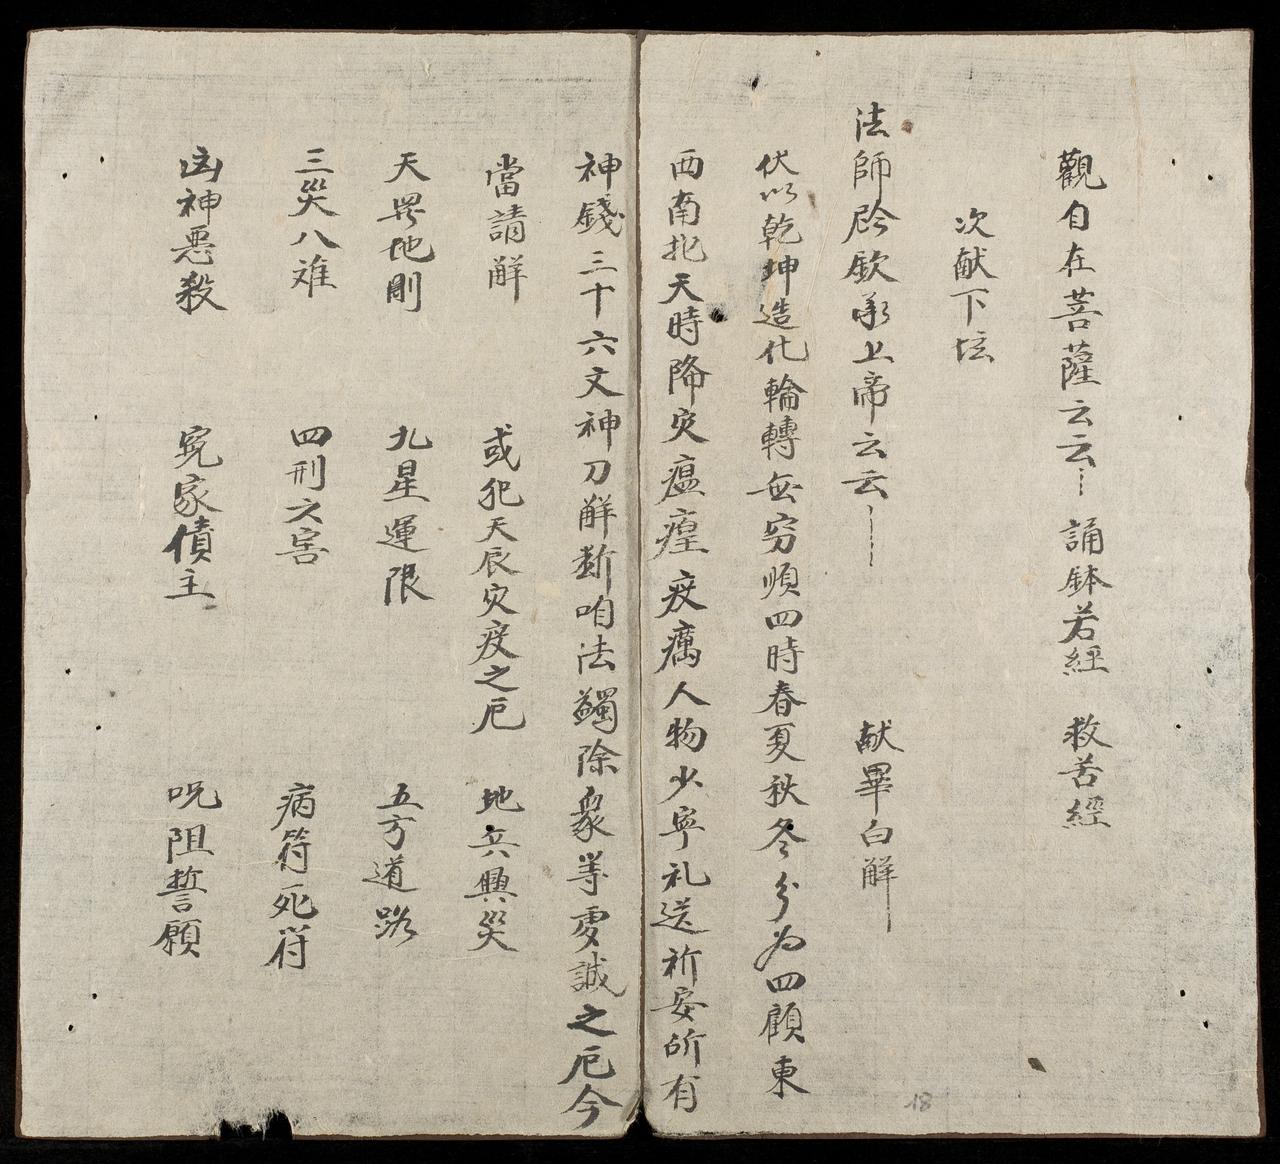 觀自在菩薩云云 誦鉢若經 救苦經
次献下坛
法師 欽承上帝云云 献畢白解
伏以乾坤造化輪轉無窮順四時春夏秋冬分为四顧東
西南北天時降灾瘟瘴疫癘人物少寧礼送祈安所有
神錢三十六文神刀解断咱法蠲除衆等虔誠之厄今
當請解 或犯天辰灾疫之厄 地兵興災
天罡地剛 九星運限 五方道路
三災八难 四刑六害 病符死符
凶神惡殺 寃家債主 呪阻誓願
18